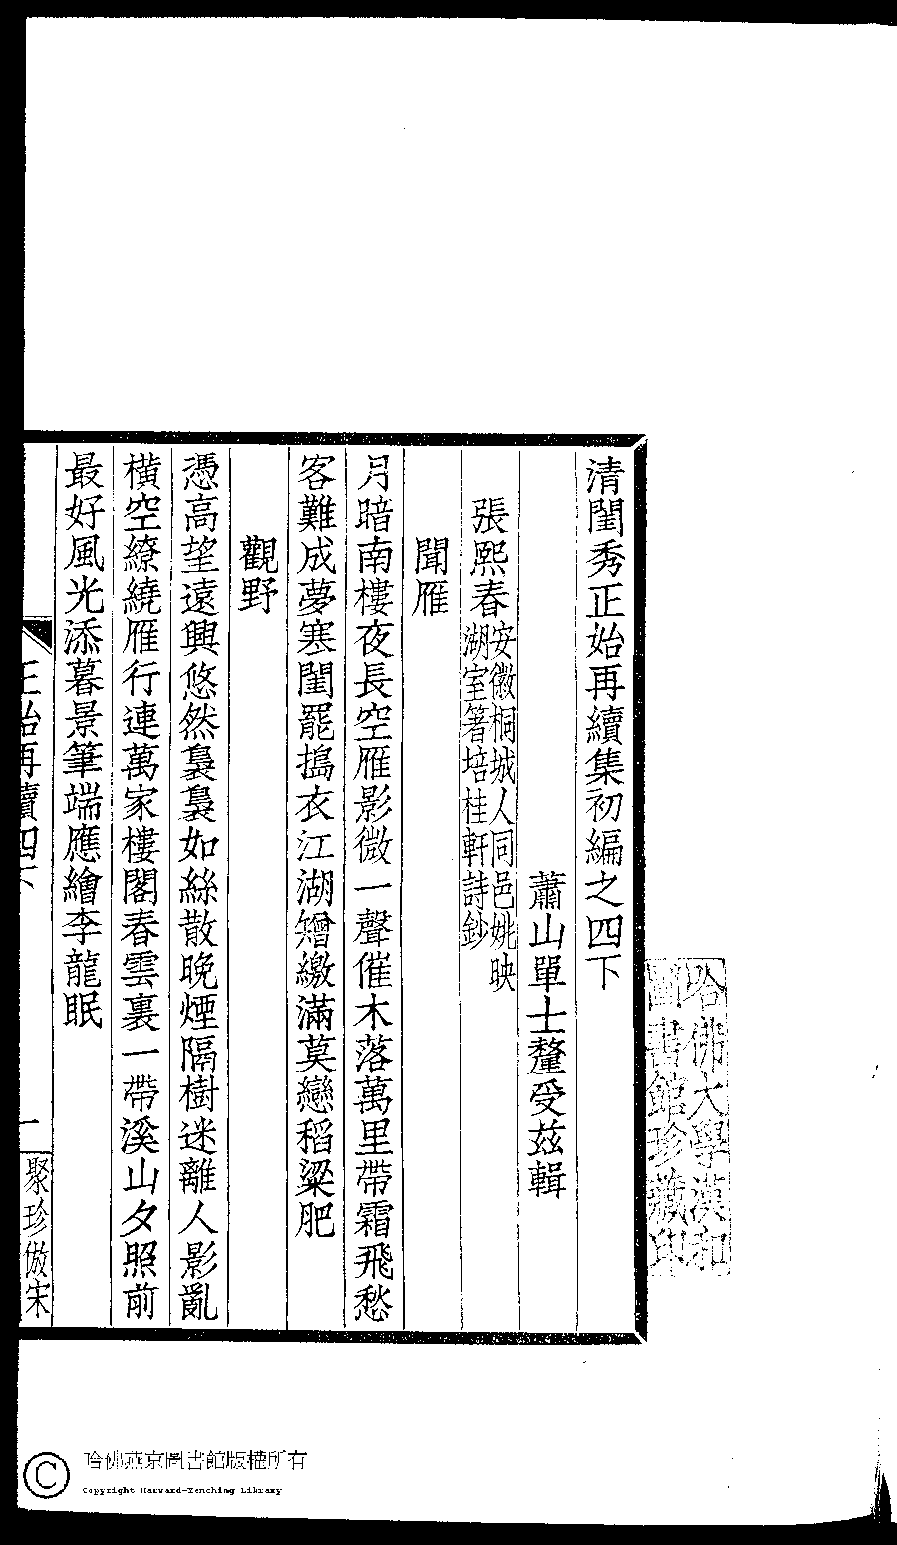 清閨秀正始再續集初編之四下
蕭山單士釐受茲輯
張熙春安徽桐城人同邑姚映
湖室箸培桂軒詩鈔
聞雁
月暗南樓夜長空雁影微一聲催木落萬里帶霜飛愁
客難成夢寒閨罷搗衣江湖矰繳滿莫戀稻粱肥
觀野
憑高望遠興悠然裊裊如絲散晚煙隔樹迷離人影亂
橫空繚繞雁行連萬家樓閣春雲裏一帶溪山夕照前
最好風光添暮景筆端應繪李龍眠
正始再續四下
一
聚珍倣宋
哈佛大學漢和
圖書館珍藏印
哈佛燕京圖書館版權所有
Copyright Harvard-Yenching Library